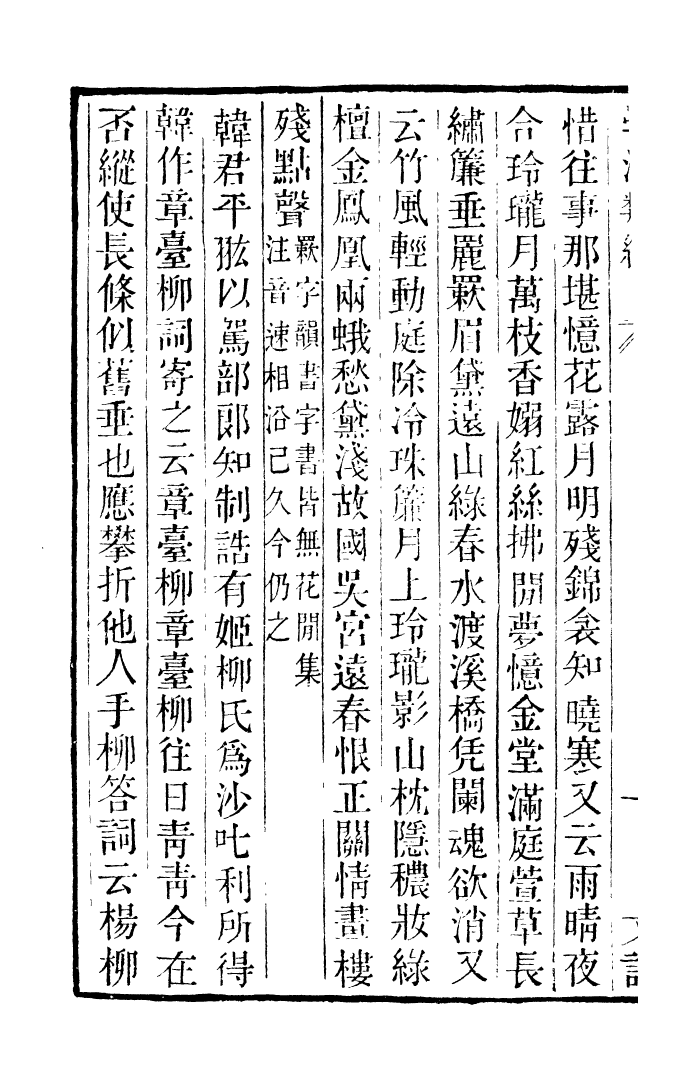 惜往事那堪憶花露月明殘錦衾知曉寒又云雨晴夜
合玲瓏月萬枝香嫋紅絲拂閒夢憶金堂滿庭萱草長
繡簾垂麗䍡眉黛遠山綠春水渡溪橋凭闌魂欲消又
云竹風輕動庭除冷珠簾月上玲瓏影山枕隱穠妝綠
檀金鳳凰兩蛾愁黛淺故國吳宮遠春恨正關情畫樓
殘點聲䍡字韻書字書皆無花閒集
注音速相沿已久今仍之
韓君平翃以駕部郎知制誥有姬柳氏爲沙吒利所得
韓作章臺柳詞寄之云章臺柳章臺柳往日靑靑今在
否縱使長條似舊垂也應攀折他人手柳答詞云楊柳